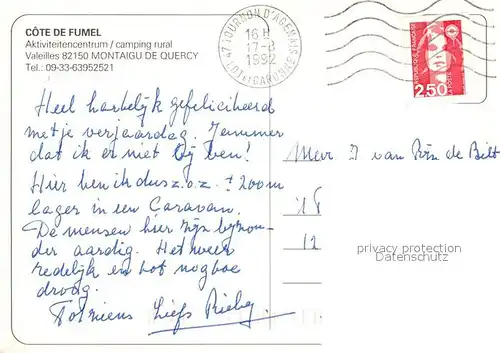 CÔTE DE FUMEL
Aktiviteitencentrum / camping rural
Valeilles 82150 MONTAIGU DE QUERCY
Tel.: 09-33-63952521
47 TOURNON D'AGENAIS
16 H
17-8
1992
LOT ET GARONNE
REPUBLIQUE FRANÇAISE
LA POSTE
2,50
Heel hartelijk gefeliciteerd
met je verjaardag. Jammer
dat ik er niet bij ben!
Hier ben ik dus z.o.z. ± 200m
lager in een Caravan.
De mensen hier zijn byzon-
der aardig. Het weer
redelijk en tot nog toe
droog.
Liefs
Mevr. J van de Bilt
18
12
privacy protection
Datenschutz